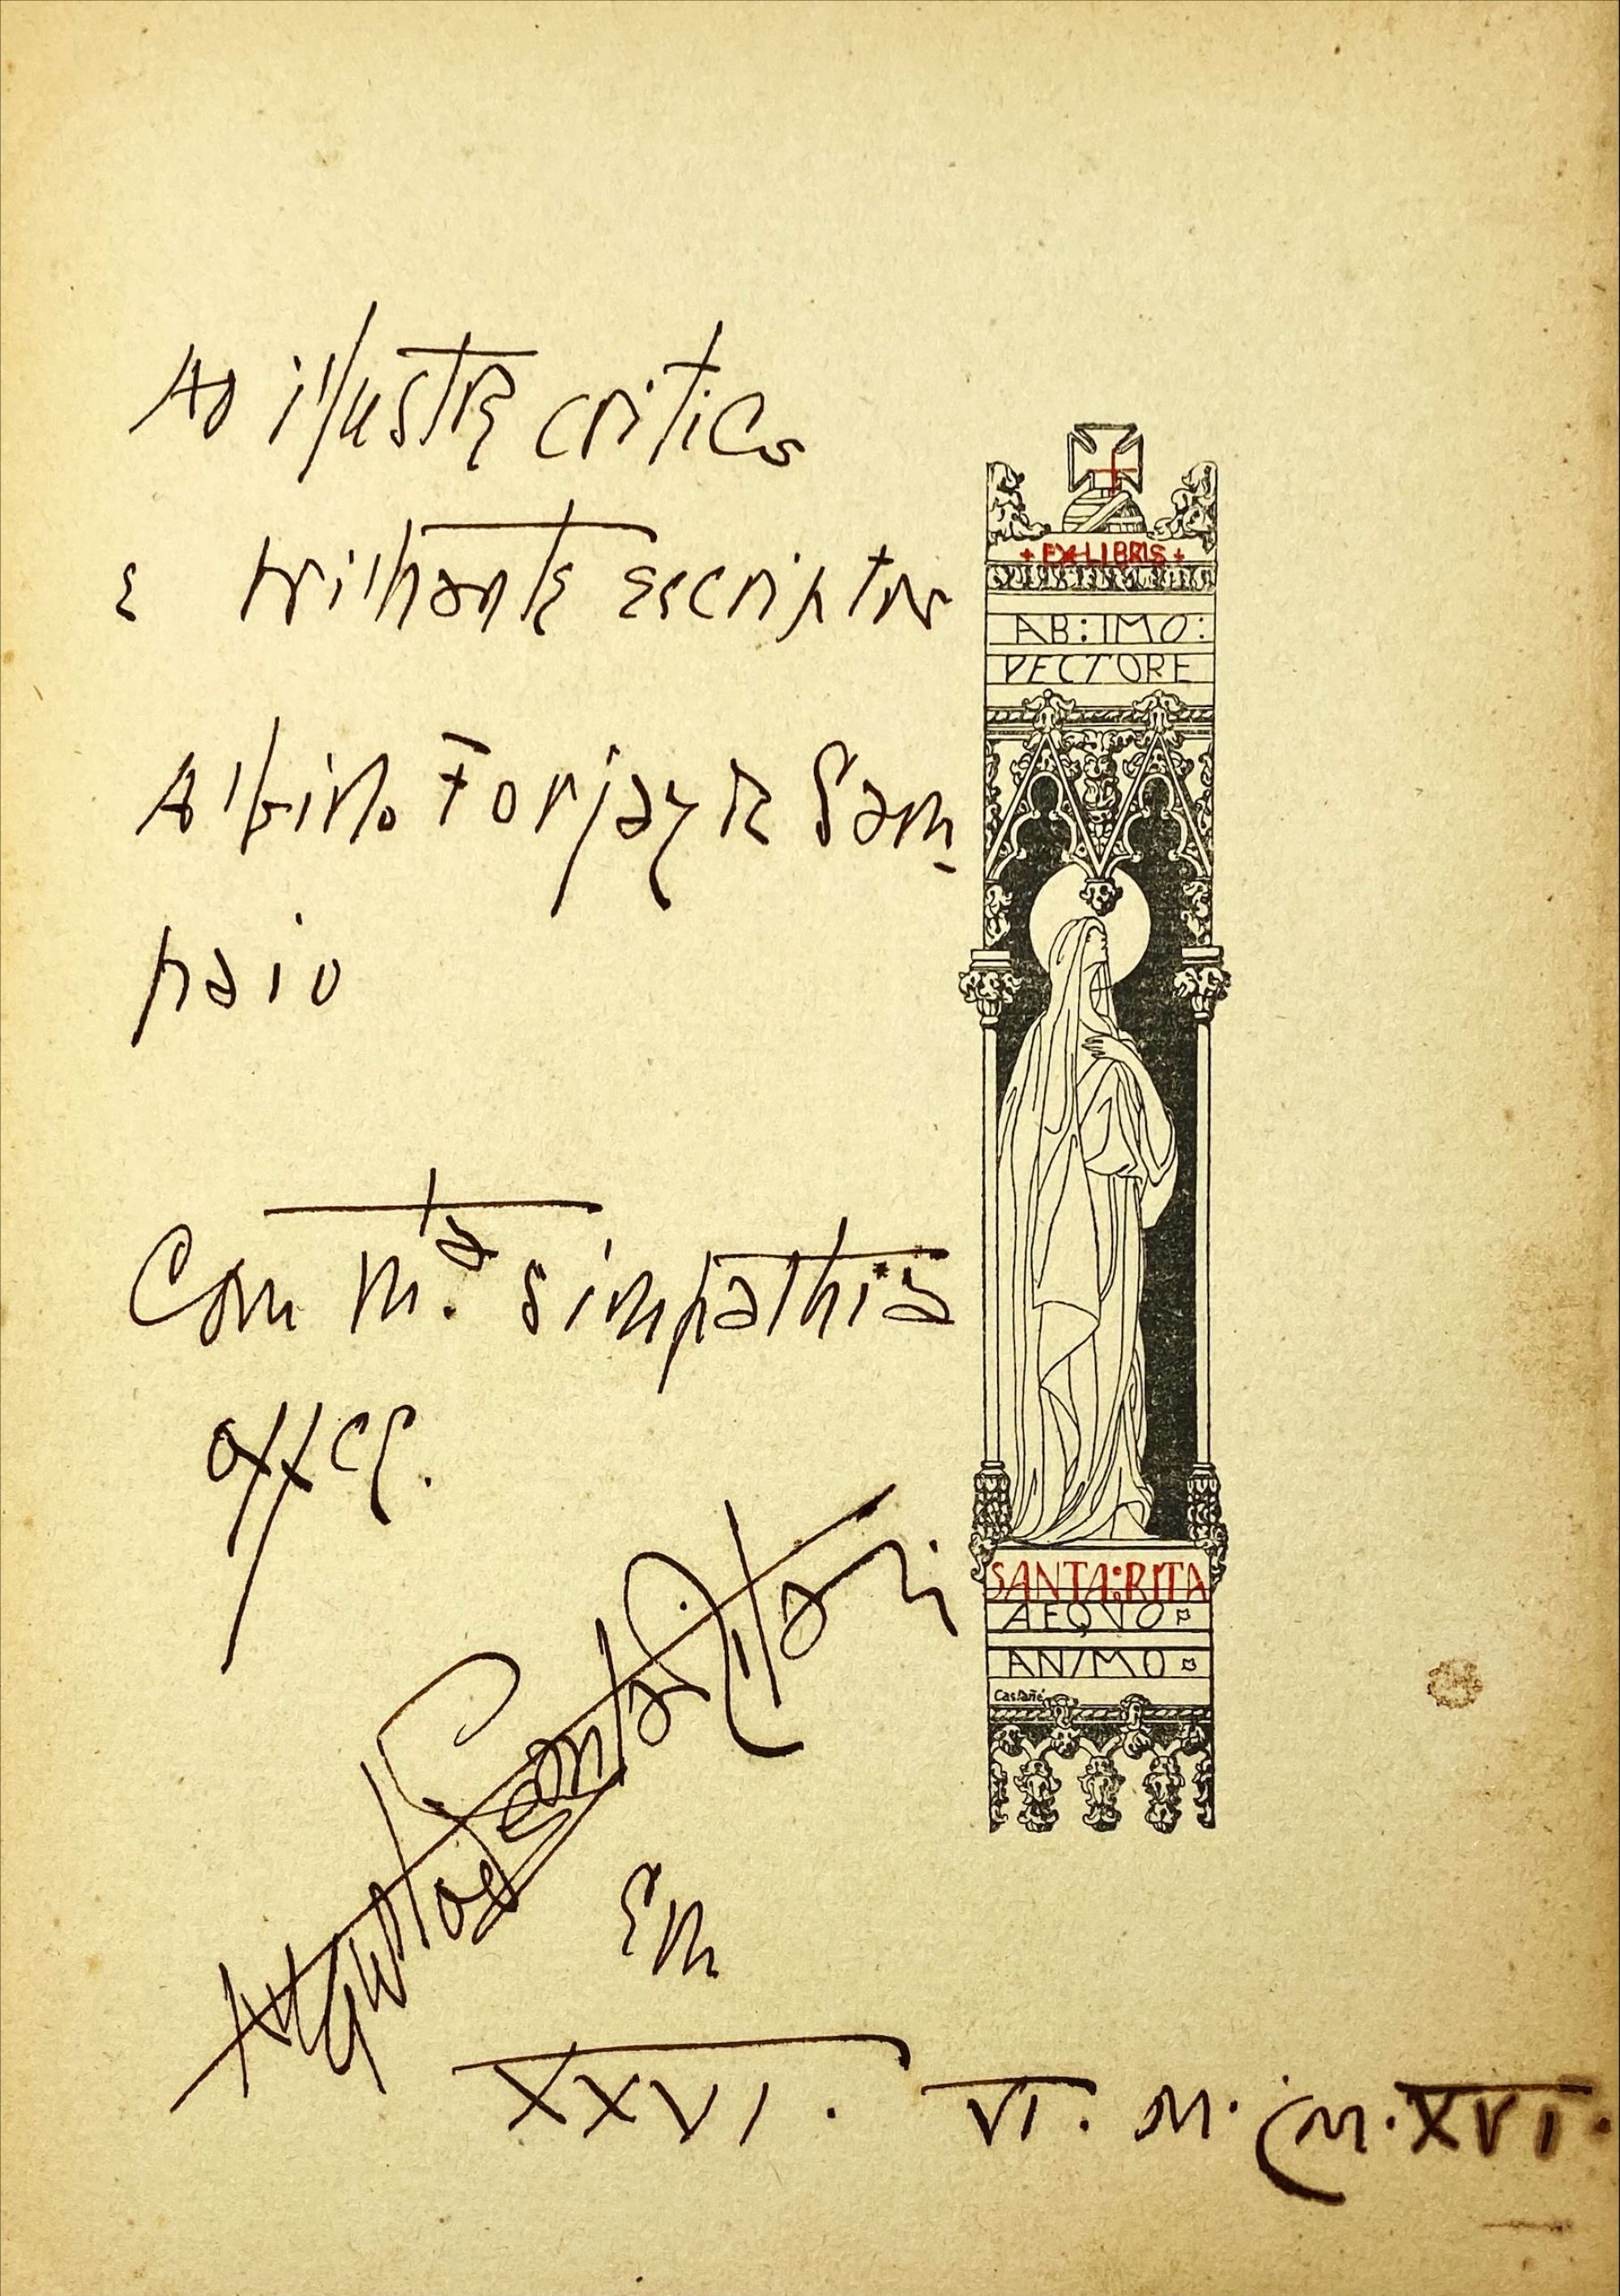 Ao illustre critico
e brilhante escriptor
Albino Forjaz de Sam-
paio
Com m.ta simpathia
offce.
Augusto de Santa-Rita
Em
XXVI. VI. M. CM. XVI.
+ EX-LIBRIS +
AB: IMO:
PECTORE
SANTA:RITA
AEQVO
ANIMO
Castañé